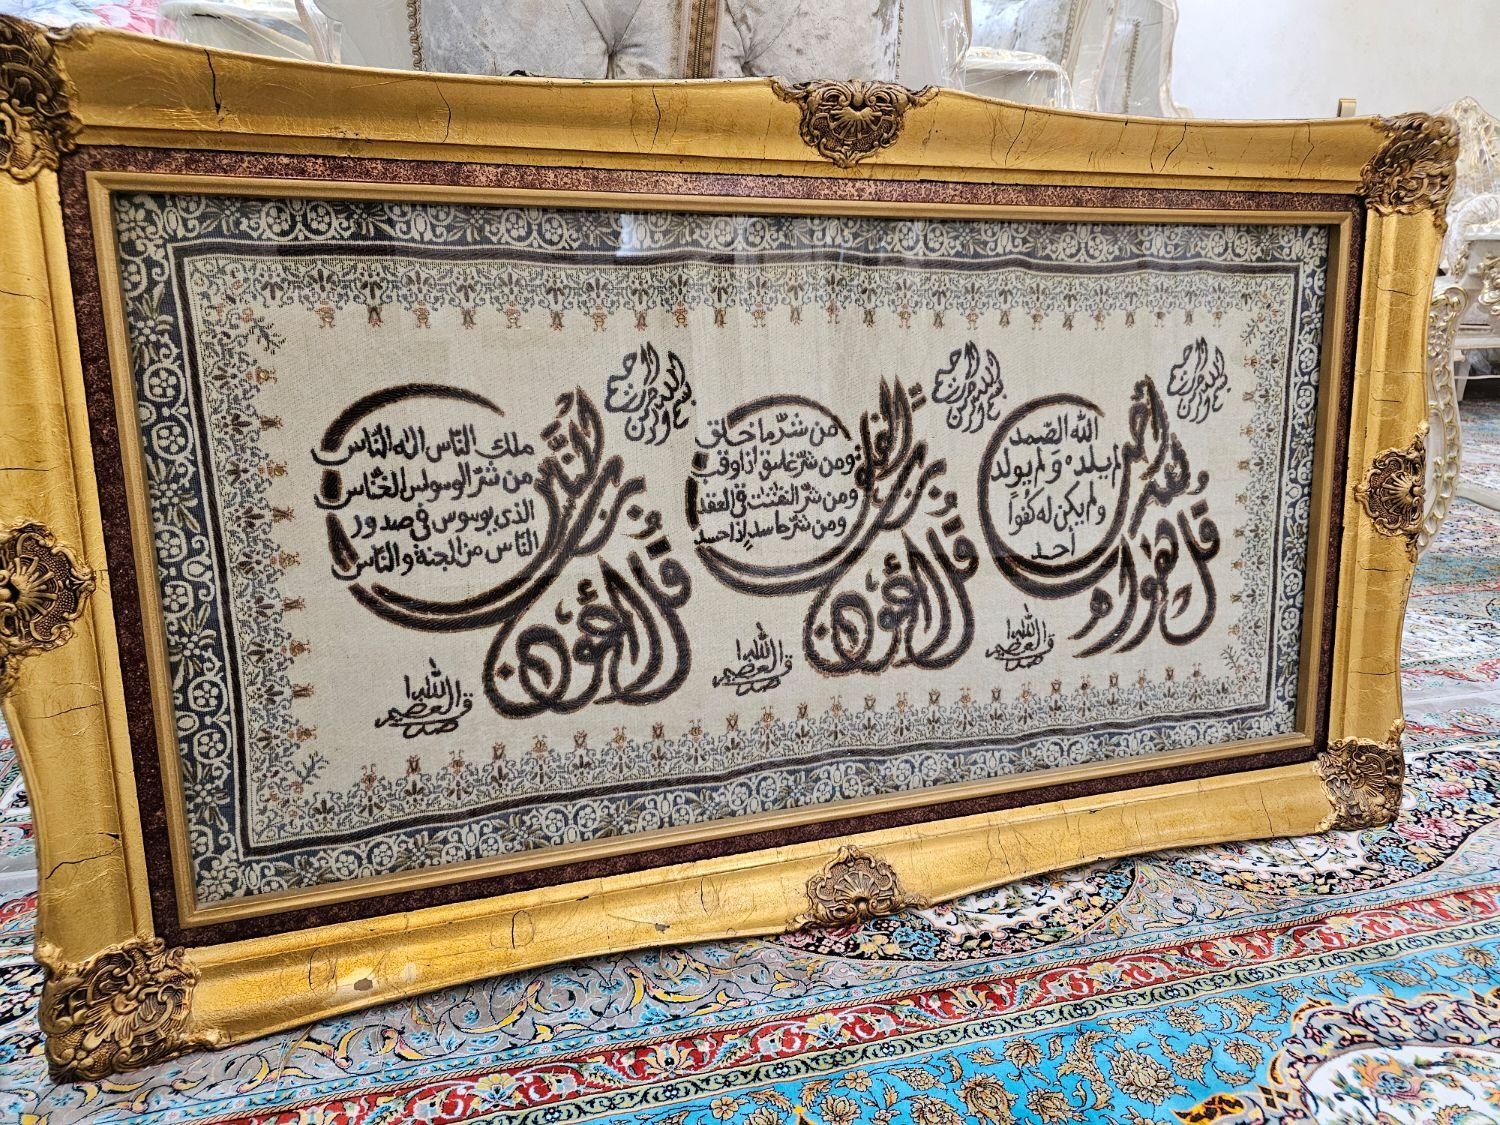 بسم الله الرحمن الرحيم
قل هو الله أحد
الله الصمد
لم يلد ولم يولد
ولم يكن له كفوا
أحد
صدق الله العظيم
بسم الله الرحمن الرحيم
قل أعوذ برب الفلق
من شر ما خلق
ومن شر غاسق اذا وقب
ومن شر النفثت في العقد
ومن شر حاسد إذا حسد
صدق الله العظيم
بسم الله الرحمن الرحيم
قل أعوذ برب الناس
ملك الناس اله الناس
من شر الوسواس الخناس
الذي يوسوس في صدور
الناس من الجنة والناس
صدق الله العظيم